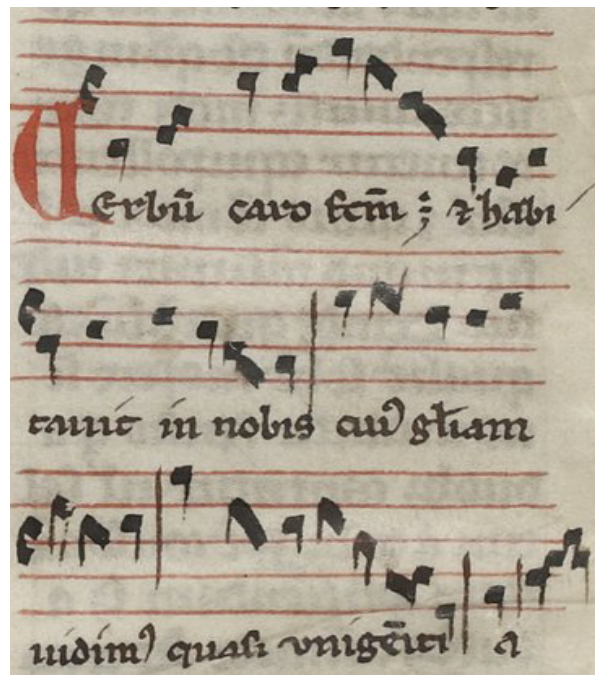 Verbū caro fcm̄ : ⁊ habi
tauit in nobis cuiꝰ gl̄iam
uidimꝰ quasi vnigēiti a